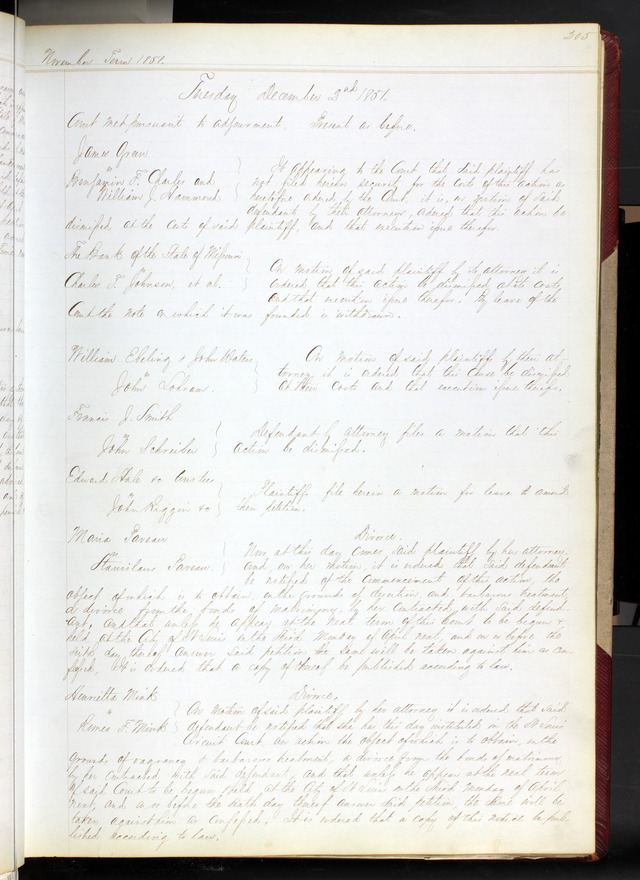 205
November Term 1851.
Tuesday December 2nd 1851.
Court met pursuant to adjournment. Present as before.
James Green
vs
Benjamin F. Charles and
William J. Hammond
It appearing to the Court that said plaintiff has
not filed herein security for the costs of this action as
heretofore ordered by the Court, it is, on motion of said
defendants by their attorney, ordered that this action be
dismissed at the costs of said plaintiff, and that execution issue therefor.
The Bank of the State of Missouri
vs
Charles F. Johnson, et al.
On motion of said plaintiff by its attorney it is
ordered that this action be dismissed at its costs
and that execution issue therefor. By leave of the
Court the note on which it was founded is withdrawn.
William Ebeling & John Waters
vs
John
On motion of said plaintiffs by their at-
torney it is ordered that this cause be dismissed
at their costs and that execution issue therefor.
Francis J. Smith
vs
John Schreiber
Defendant by attorney files a motion that this
action be dismissed.
Edward Hale
vs
John Riggin &c
Plaintiffs file herein a motion for leave to amend
their petition.
Maria Parsau
vs
Stanislaus Parsau.
Divorce.
Now at this day comes said plaintiff by her attorney
and, on her motion, it is ordered that said defendant
be notified of the commencement of this action, the
object of which is to obtain, on the grounds of desertion, and barbarous treatment,
a divorce from the bonds of matrimony, by her contracted with said defend-
ant, and that unless he appear at the next term of this Court to be begun &
held at the City of St Louis on the third Monday of April next, and on or before the
sixth day thereof answer said petition the same will be taken against him as con-
fessed. It is ordered that a copy of thereof be published according to law.
Henrietta Mink
vs
F. Mink
Divorce.
On motion of said plaintiff by her attorney it is ordered that said
defendant be notified that she has this day instituted in the St Louis
Circuit Court an action the object of which is to obtain, on the
grounds of vagrancy & barbarous treatment, a divorce from the bonds of matrimony
by her contracted with said defendant, and that unless he appear at the next term
of said Court to be begun & held at the City of St Louis on the third Monday of April
next, and on or before the sixth day thereof answer said petition, the same will be
taken against him as confessed. It is ordered that a copy of this notice be pub-
lished according to law.